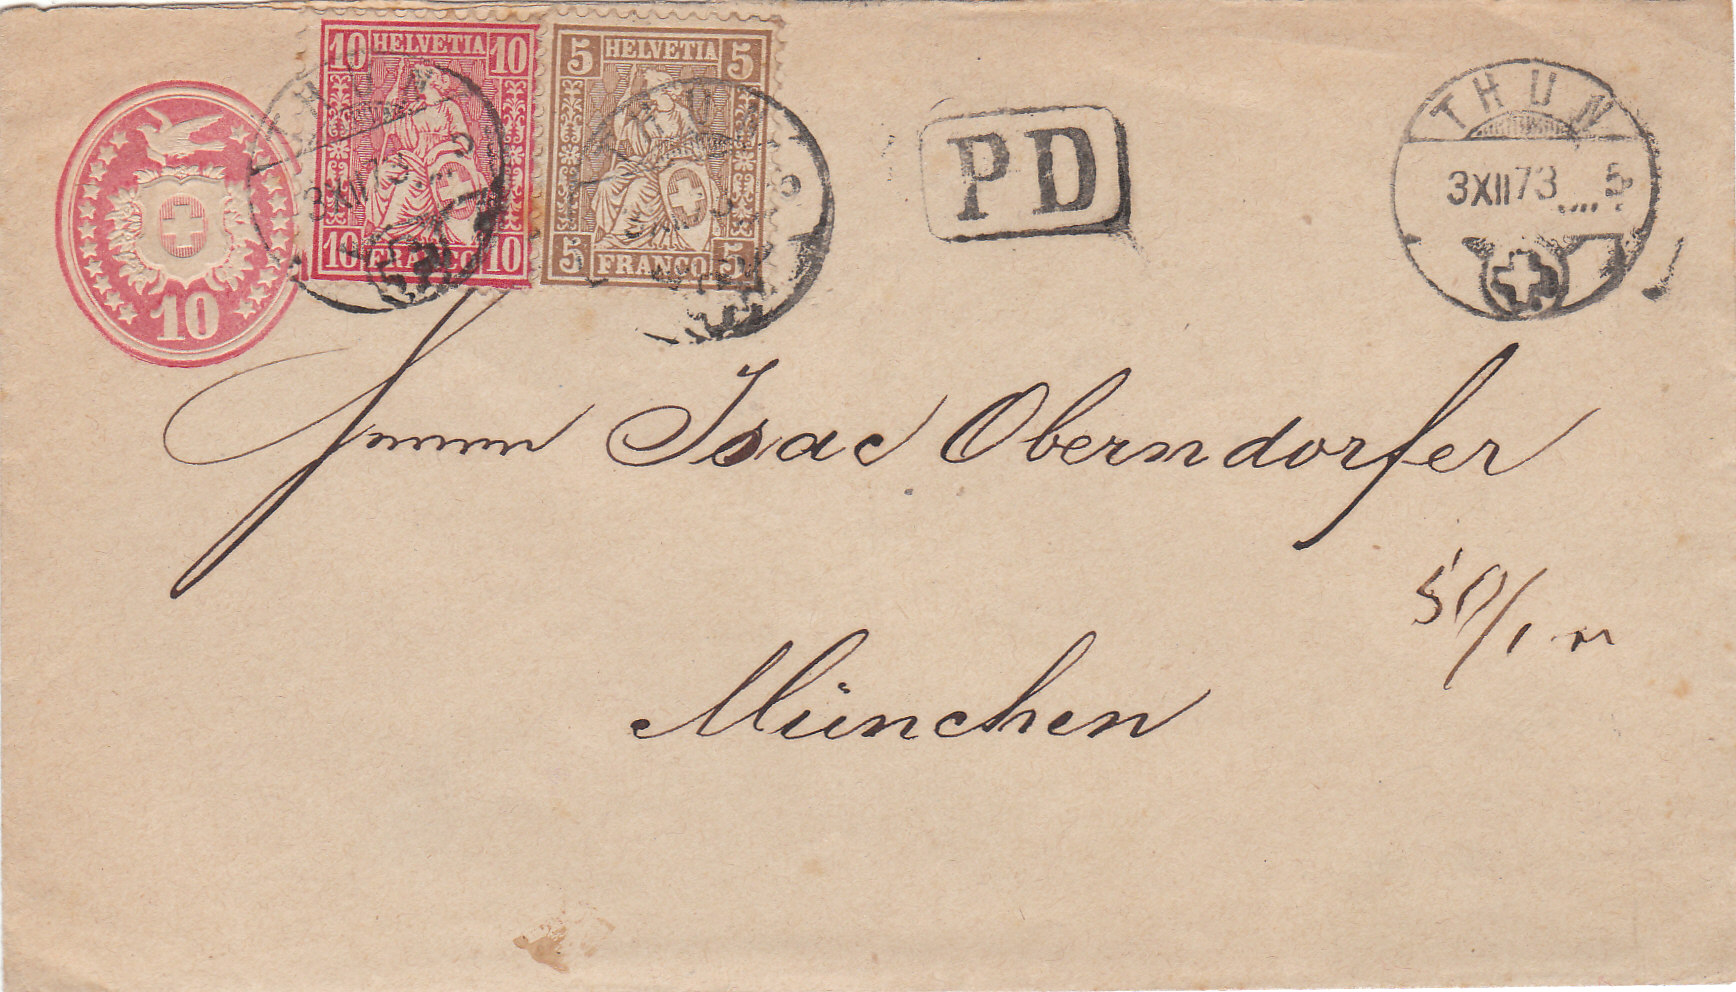 10 HELVETIA 10
10 FRANCO 10
5 HELVETIA 5
5 FRANCO 5
10
THUN
3XII73
THUN
PD
THUN
3XII73 5
Herrn Isac Oberndorfer
50/1
München